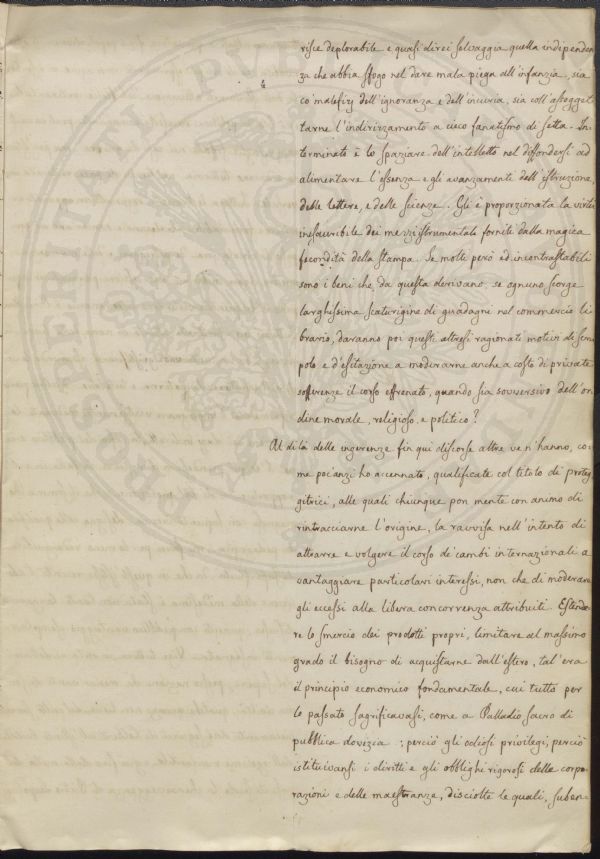 risce deplorabile e quasi direi selvaggia quella independen
za che abbia sfogo nel dare mala piega all'infanzia, sia
co' malefizj dell'ignoranza e dell'incuria, sia coll'assogget
tarne l'indirizzamento a cieco fanatismo di setta. In
terminato è lo spaziare dell'intelletto nel diffondersi ad
alimentare l'essenza e gli avanzamenti dell'istruzione,
delle lettere, e delle scienze. Gli è proporzionata la virtù
inesauribile dei mezzi istrumentali forniti dalla magica
fecondità della stampa. Se molti però ed incontrastabili
sono i beni che da questa derivano, se ognuno scorge
larghissima scaturigine di guadagni nel commercio li
brario, daranno poi questi altresì ragionati motivi di scru
polo e d'esitazione a moderarne anche a costo di private
sofferenze il corso effrenato, quando sia sovversivo dell'or
dine morale, religioso, e politico?
Al di là delle ingerenze fin qui discorse altre ve n'hanno, co
me poc'anzi ho accennato, qualificate col titolo di proteg
gitrici, alle quali chiunque pon mente con animo di
rintracciarne l'origine, la ravvisa nell'intento di
attrarre e volgere il corso de' cambi internazionali a
vantaggiare particolari interessi, non che di moderare
gli eccessi alla libera concorrenza attribuiti. Estende
re lo smercio dei prodotti propri, limitare al massimo
grado il bisogno di acquistarne dall'estero, tal'era
il principio economico fondamentale, cui tutto per
lo passato sagrificavasi, come a Palladio sacro di
pubblica dovizia; perciò gli odiosi privilegi, perciò
istituivansi i diritti e gli obblighi rigorosi delle corpo
razioni e delle maestranze, disciolte le quali, suben=
PROSPERITATI PUBLICAE